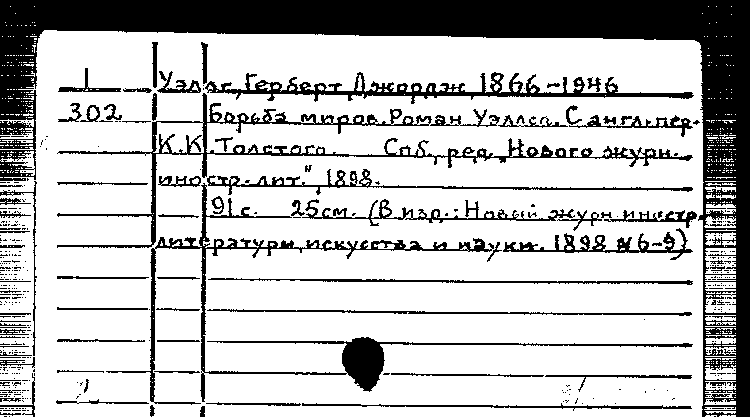 1 Уэллс, Герберт Джордж, 1866-1946
302 Борьба миров. Роман Уэллса. С англ. пер.
К.К. Толстого. Спб., ред. "Нового журн.
иностр. лит.", 1898.
91 с. 25 см. (В изд.: Новый журн. иностр.
литературы, искусства и науки. 1898 №6-9)